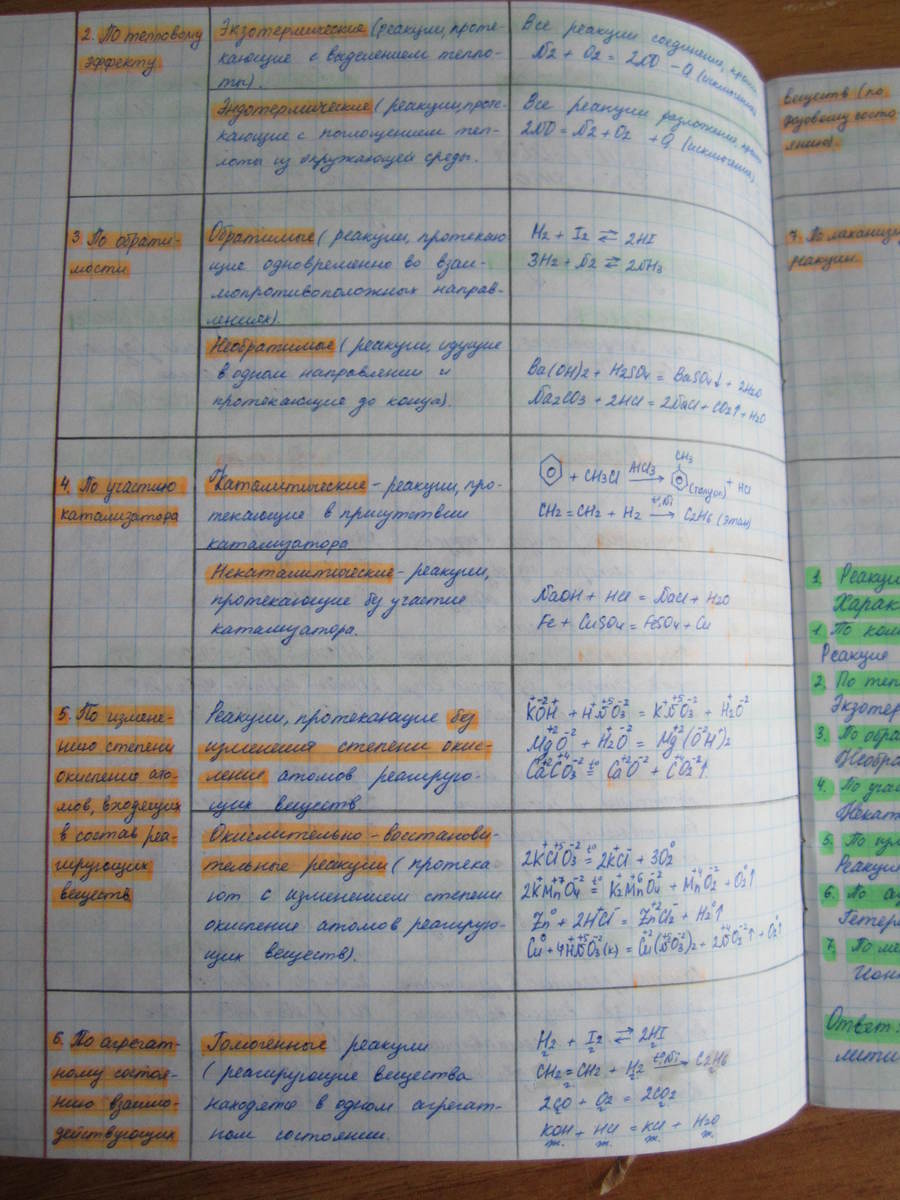 2. По тепловому
эффекту.
Экзотермические (реакции, проте-
кающие с выделением тепло-
ты).
Все реакции соединения, кроме
N2 + O2 = 2NO - Q (исключение)
Эндотермические (реакции, проте-
кающие с поглощением теп-
лоты из окружающей среды.
Все реакции разложения, кроме
2NO = N2 + O2 + Q (исключение).
3. По обрати-
мости
Обратимые (реакции, протекаю-
щие одновременно во взаи-
мопротивоположных направ-
лениях).
H2 + I2 ⇄ 2HI
3H2 + N2 ⇄ 2NH3
Необратимые (реакции, идущие
в одном направлении и
протекающие до конца).
Ba(OH)2 + H2SO4 = BaSO4↓ + 2H2O
Na2CO3 + 2HCl = 2NaCl + CO2↑ + H2O
4. По участию
катализатора
Каталитические - реакции, про-
текающие в присутствии
катализатора
+ CH3Cl AlCl3→ CH3 (толуол) + HCl
CH2=CH2 + H2 t°,Ni→ C2H6 (этан)
Некаталитические - реакции,
протекающие без участие
катализатора.
NaOH + HCl = NaCl + H2O
Fe + CuSO4 = FeSO4 + Cu
5. По измене-
нию степени
окисления ато-
мов, входящих
в состав реа-
гирующих
веществ
Реакции, протекающие без
изменения степени окис-
ления атомов реагирую-
щих веществ
K⁺O⁻²H⁺ + H⁺N⁺⁵O3⁻² = K⁺N⁺⁵O3⁻² + H2⁺O⁻²
Mg⁺²O⁻² + H2⁺O⁻² = Mg⁺²(O⁻²H⁺)2
Ca⁺²C⁺⁴O3⁻² t°= Ca⁺²O⁻² + C⁺⁴O2⁻²↑
Окислительно-восстанови-
тельные реакции (протека
ют с изменением степени
окисления атомов реагирую-
щих веществ).
2K⁺Cl⁺⁵O3⁻² t°= 2K⁺Cl⁻ + 3O2⁰
2K⁺Mn⁺⁷O4⁻² t°= K2⁺Mn⁺⁶O4⁻² + Mn⁺⁴O2⁻² + O2⁰↑
Zn⁰ + 2H⁺Cl⁻ = Zn⁺²Cl2⁻ + H2⁰↑
Cu⁰ + 4H⁺N⁺⁵O3⁻²(к) = Cu⁺²(N⁺⁵O3⁻²)2 + 2N⁺⁴O2⁻²↑ + O2⁰↑
6. По агрегат-
ному состоя-
нию взаимо-
действующих
Гомогенные реакции
(реагирующие вещества
находятся в одном агрегат-
ном состоянии.
H2 + I2 ⇄ 2HI
г г
CH2=CH2 + H2 t°,Ni→ C2H6
г г г
2CO + O2 = 2CO2
г г г
KOH + HCl = KCl + H2O
ж. ж. ж. ж.
веществ (по
фазовому состо
янию).
7. По механизму
реакции.
1. Реакци
Харак
1. По коли
Реакция
2. По теп
Экзотер
3. По обра
Необра
4. По учас
Некат
5.
Реакция
6. По аг
Гетеро
7. По ме
Ион
Ответ: